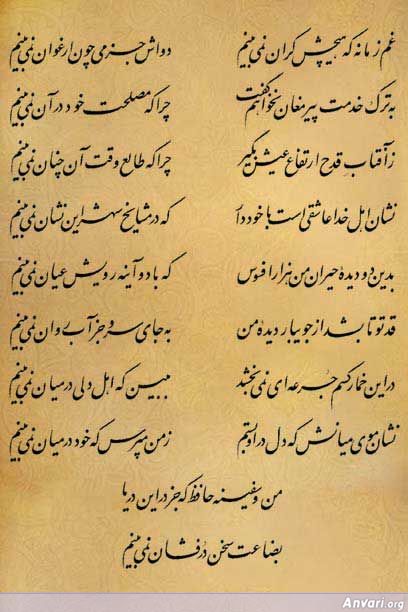 غم زمانه که هیچش کران نمی بینم دواش جز می چون ارغوان نمی بینم
به ترک خدمت پیر مغان نخواهم گفت چرا که مصلحت خود در آن نمی بینم
ز آفتاب قدح ارتفاع عیش بگیر چرا که طالع وقت آن چنان نمی بینم
نشان اهل خدا عاشقی است با خود دار که در مشایخ شهر این نشان نمی بینم
بدین دو دیده حیران من هزار افسوس که با دو آینه رویش عیان نمی بینم
قد تو تا بشد از جویبار دیده من به جای سرو جز آب روان نمی بینم
در این خمار کسم جرعه ای نمی بخشد ببین که اهل دلی در میان نمی بینم
نشان موی میانش که دل در او بستم ز من مپرس که خود در میان نمی بینم
من و سفینه حافظ که جز در این دریا
بضاعت سخن درفشان نمی بینم
Anvari.org